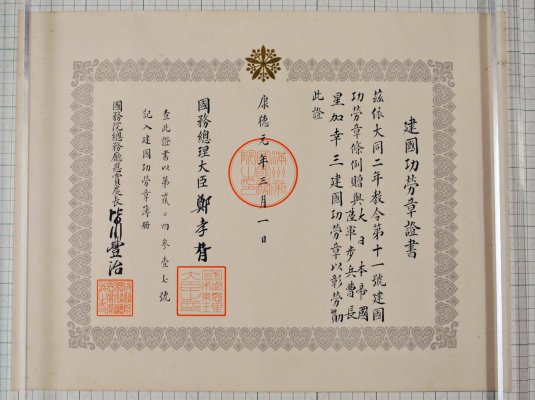 建國功勞章證書
茲依大同二年教令第十一號建國
功勞章條例贈與大日本帝國
陸軍步兵曹長
星加幸三建國功勞章以彰勞勛
此證
康德元年三月一日
國務總理大臣 鄭孝胥
查此證書以第貳〇四參壹七號
記入建國功勞章簿冊
國務院總務廳恩賞處長